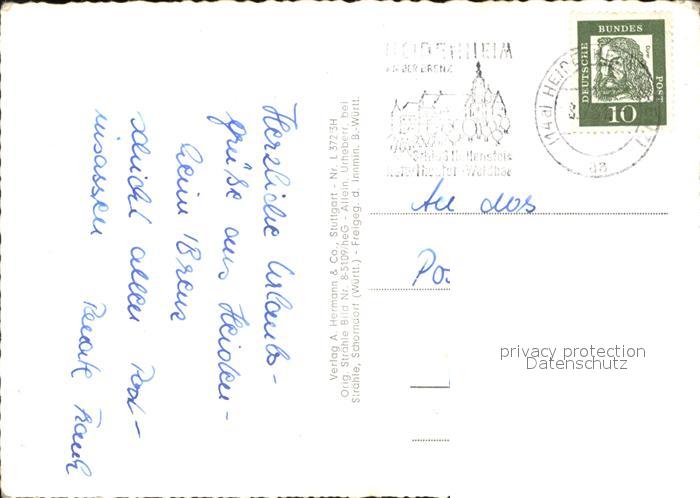 Herzliche Urlaubs-
grüße aus Heiden-
heim /Brenz
schickt allen
Frank
Verlag A. Hermann & Co., Stuttgart - Nr. L 372/3H
Orig. Strähle Bild Nr. 8-5109/heG - Allein. Urheberr. bei
Strähle, Schorndorf (Württ.) - Freigeg. d. Innmin. B.-Württ.
HEIDENHEIM
AN DER BRENZ
Schloß Hellenstein
DEUTSCHE
BUNDES
POST
10
An das
privacy protection
Datenschutz